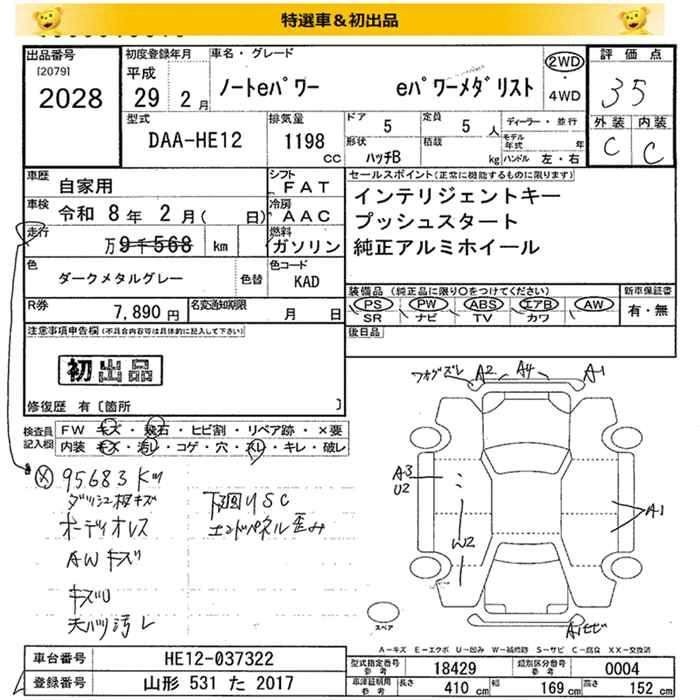 特選車&初出品
出品番号
[2079]
2028
初度登録年月
平成
29 年 2 月
車名・グレード
ノートeパワー eパワーメダリスト
2WD
4WD
評価点
3.5
外装 内装
C C
型式
DAA-HE12
排気量
1198 CC
ドア 5
定員 5 人
形状 ハッチB
積載 kg
ディーラー・並行
モデル年式 年
ハンドル 左・右
車歴 自家用
シフト FAT
車検 令和 8 年 2 月 ( 日)
冷房 AAC
走行 万 9千568 km
燃料 ガソリン
色 ダークメタルグレー 色替
色コード KAD
R券 7,890 円
名変通知期限 月 日
セールスポイント(正常に機能するものに限ります)
インテリジェントキー
プッシュスタート
純正アルミホイール
装備品 (純正品に限り○をつけてください)
PS PW ABS エアB AW
SR ナビ TV カワ
新車保証書
有・無
後日品
注意事項申告欄(不具合内容等は具体的に記入して下さい)
初出品
修復歴 有〔箇所 〕
検査員記入欄
FW キズ・飛石・ヒビ割・リペア跡・×要
内装 キズ・汚レ・コゲ・穴・スレ・キレ・破レ
95683 Km
ダッシュ板キズ
オーディオレス
AWキズ
キズU
天バリ汚レ
下廻りSC
エンドパネル歪み
フォグズレ A2 A4 A1
A3
U2
W2
A1
スペア
A-キズ E-エクボ U-凹み W-補修跡 S-サビ C-腐食 XX-交換済
車台番号 HE12-037322
登録番号 山形 531 た 2017
型式指定番号 参考 18429
類別区分番号 参考 0004
車庫証明用 参考 長さ 410 cm 幅 169 cm 高さ 152 cm